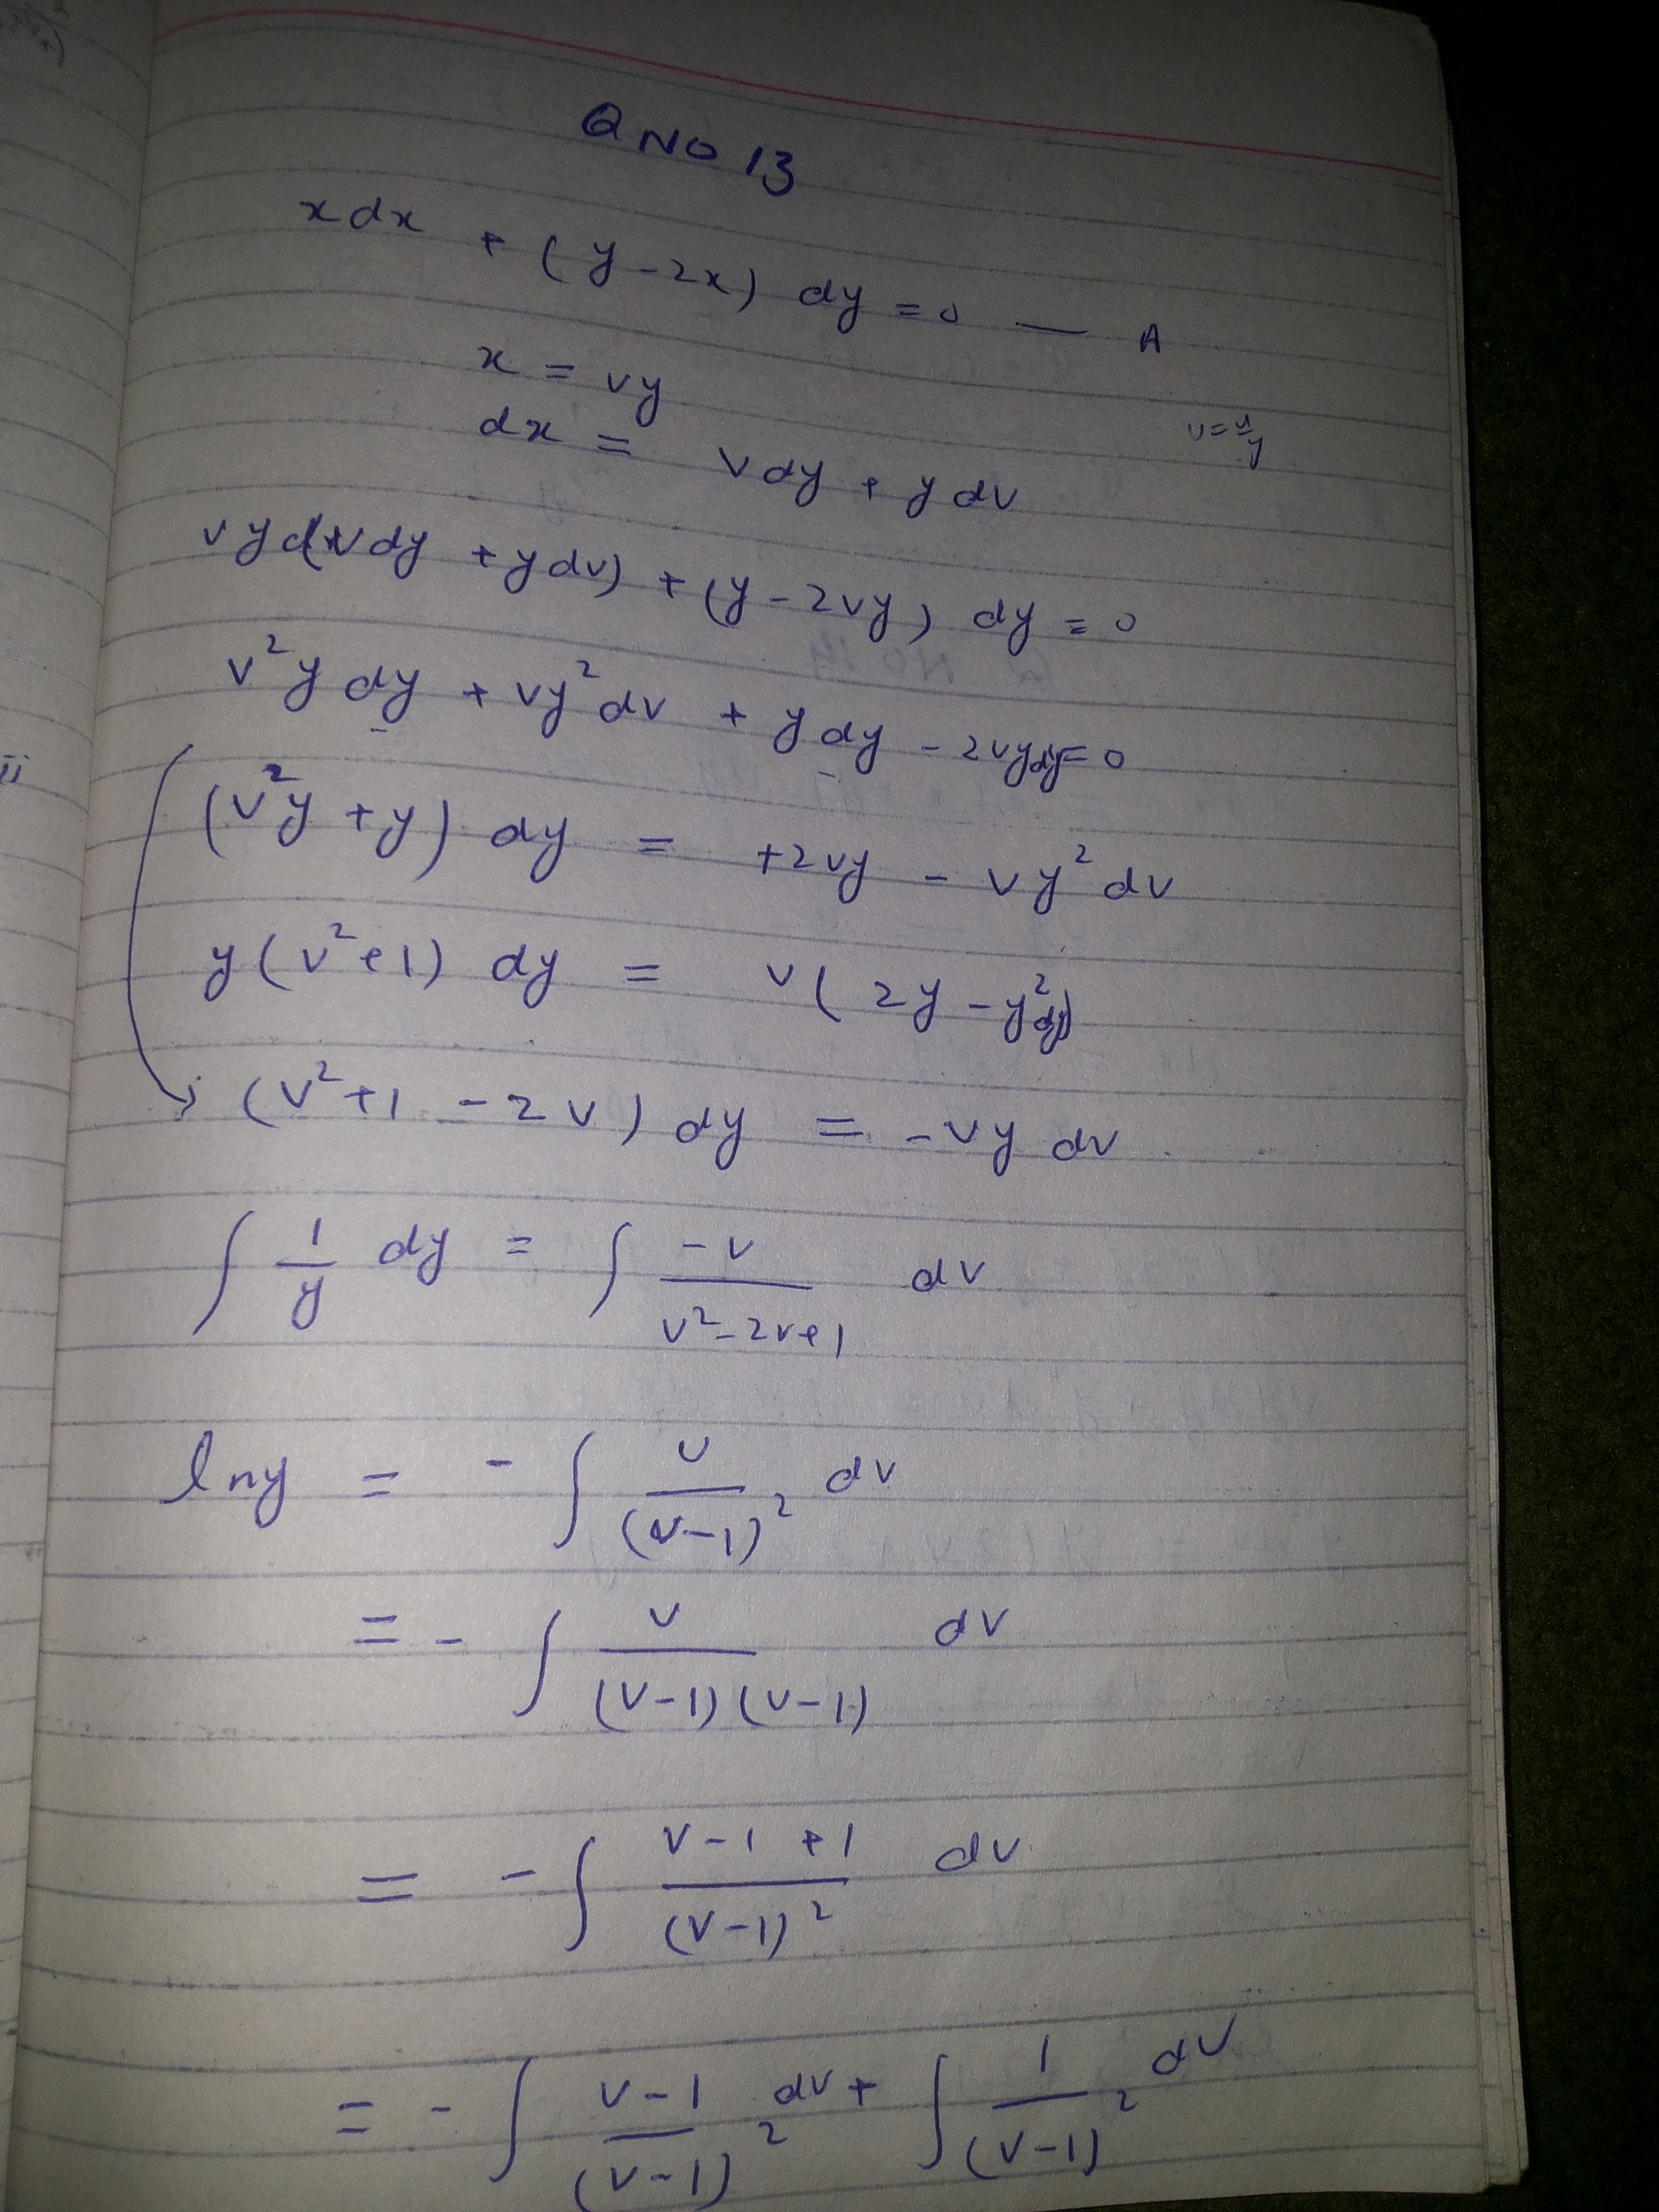 Q NO 13
x dx + (y - 2x) dy = 0 — A
x = vy
dx = v dy + y dv
v = x/y
vy (v dy + y dv) + (y - 2vy) dy = 0
v² y dy + vy² dv + y dy - 2vy dy = 0
(v² y + y) dy = +2vy - vy² dv
y (v² + 1) dy = v ( 2y - y² dy)
(v² + 1 - 2v) dy = - vy dv
∫ 1/y dy = ∫ -v/(v² - 2v + 1) dv
ln y = - ∫ v/(v-1)² dv
= - ∫ v/((v-1)(v-1)) dv
= - ∫ (v - 1 + 1)/(v-1)² dv
= - ∫ (v-1)/(v-1)² dv + ∫ 1/(v-1)² dv